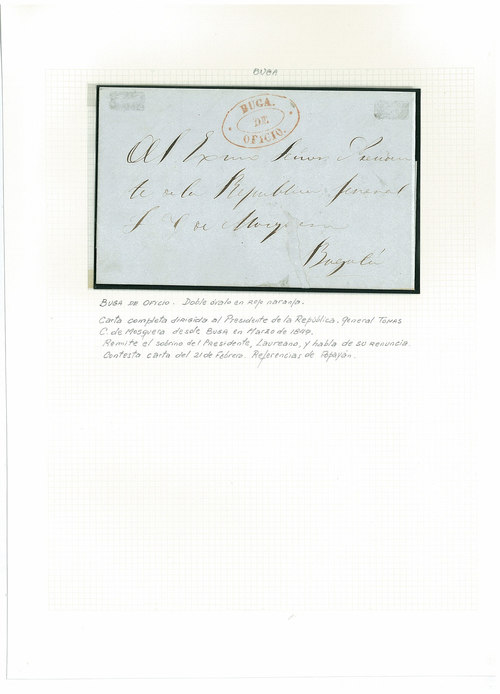 BUGA
BUGA.
DE
OFICIO.
Al Exmo Señor Presiden
te de la Republica Jeneral
T C de Mosquera
Bogotá
BUGA DE OFICIO. Doble óvalo en rojo naranja.
Carta completa dirigida al Presidente de la República. General TOMAS
C. de Mosquera desde BUGA en Marzo de 1849.
Remite el sobrino del Presidente, Laureano, y habla de su renuncia.
Contesta carta del 21 de Febrero. Referencias de Popayán.